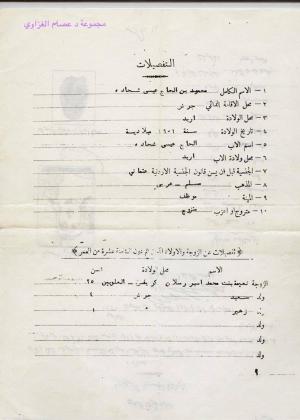 مجموعة د عصام الغزاوي
التفصيلات
١ – الاسم الكامل محمود بن الحاج عيسى شحاده
٢ – محل الاقامة الحالي جرش
٣ – محل الولادة اربد
٤ – تاريخ الولادة سنة ١٩٠١ ميلادية
٥ – اسم الاب الحاج عيسى شحاده
٦ – محل ولادة الاب اربد
٧ – الجنسية قبل ان يسن قانون الجنسية الاردنية عثماني
٨ – المذهب مسلم – عربي
٩ – المهنة موظف
١٠ – متزوج او اعزب متزوج
﴿ تفصيلات عن الزوجة والاولاد الذين هم دون الثامنة عشرة من العمر ﴾
الاسم محل الولادة السن
الزوجة نعيمة بنت محمد امير رسلان ٢٥
ولد سعيد جرش ٤
ولد زهير " ١
ولد
ولد
ولد